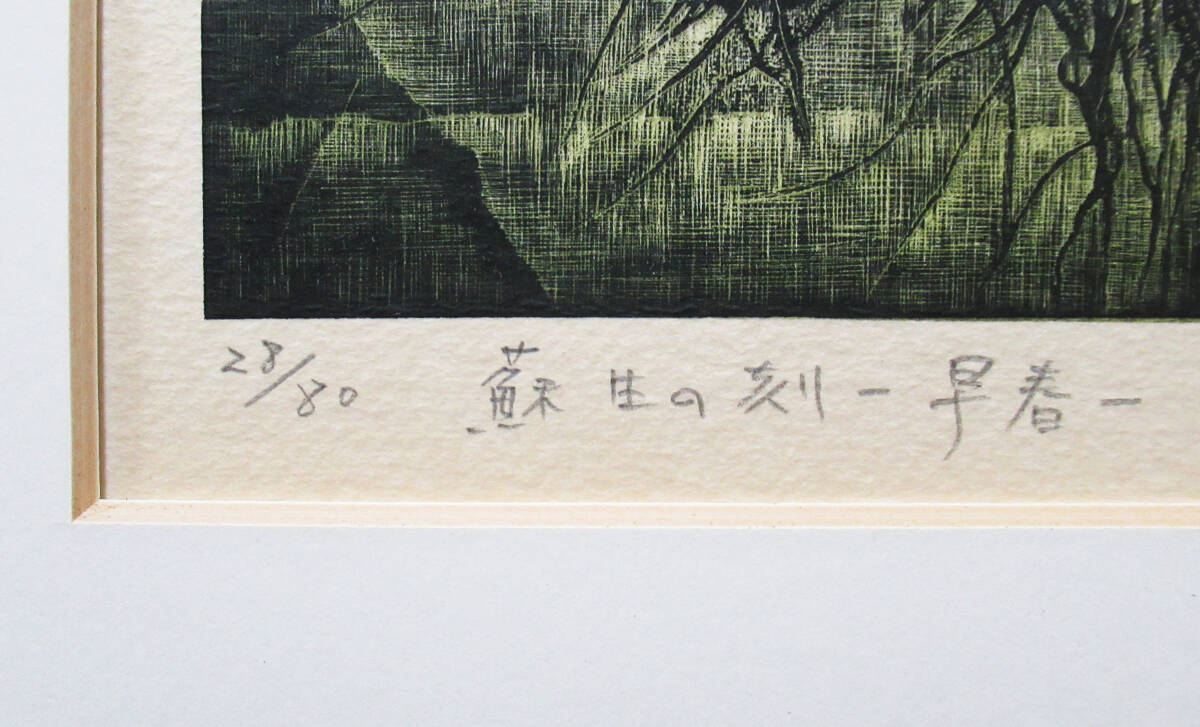 28/80 蘇生の刻-早春-